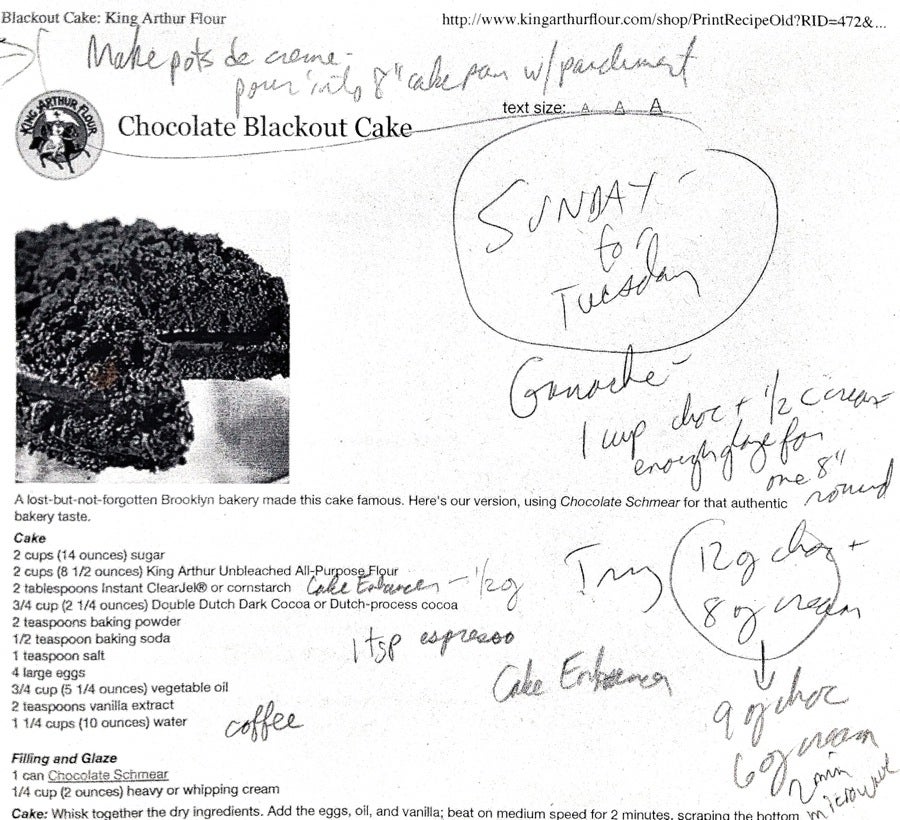 Blackout Cake: King Arthur Flour
http://www.kingarthurflour.com/shop/PrintRecipeOld?RID=472&...
Make pots de creme-
pour into 8" cake pan w/ parchment
KING ARTHUR FLOUR
text size: A A A
Chocolate Blackout Cake
SUNDAY -
to
Tuesday
Ganache -
1 cup choc + 1/2 c cream
enough glaze for
one 8"
round
A lost-but-not-forgotten Brooklyn bakery made this cake famous. Here's our version, using Chocolate Schmear for that authentic
bakery taste.
Cake
2 cups (14 ounces) sugar
2 cups (8 1/2 ounces) King Arthur Unbleached All-Purpose Flour
2 tablespoons Instant ClearJel® or cornstarch Cake Enhancer -
3/4 cup (2 1/4 ounces) Double Dutch Dark Cocoa or Dutch-process cocoa
2 teaspoons baking powder
1/2 teaspoon baking soda
1 tsp espresso
1 teaspoon salt
4 large eggs
3/4 cup (5 1/4 ounces) vegetable oil
2 teaspoons vanilla extract
1 1/4 cups (10 ounces) water coffee
Try 12 oz choc +
8 oz cream
Cake Enhancer
9 oz choc
6 oz cream
2 min
microwave
Filling and Glaze
1 can Chocolate Schmear
1/4 cup (2 ounces) heavy or whipping cream
Cake: Whisk together the dry ingredients. Add the eggs, oil, and vanilla; beat on medium speed for 2 minutes, scraping the bottom